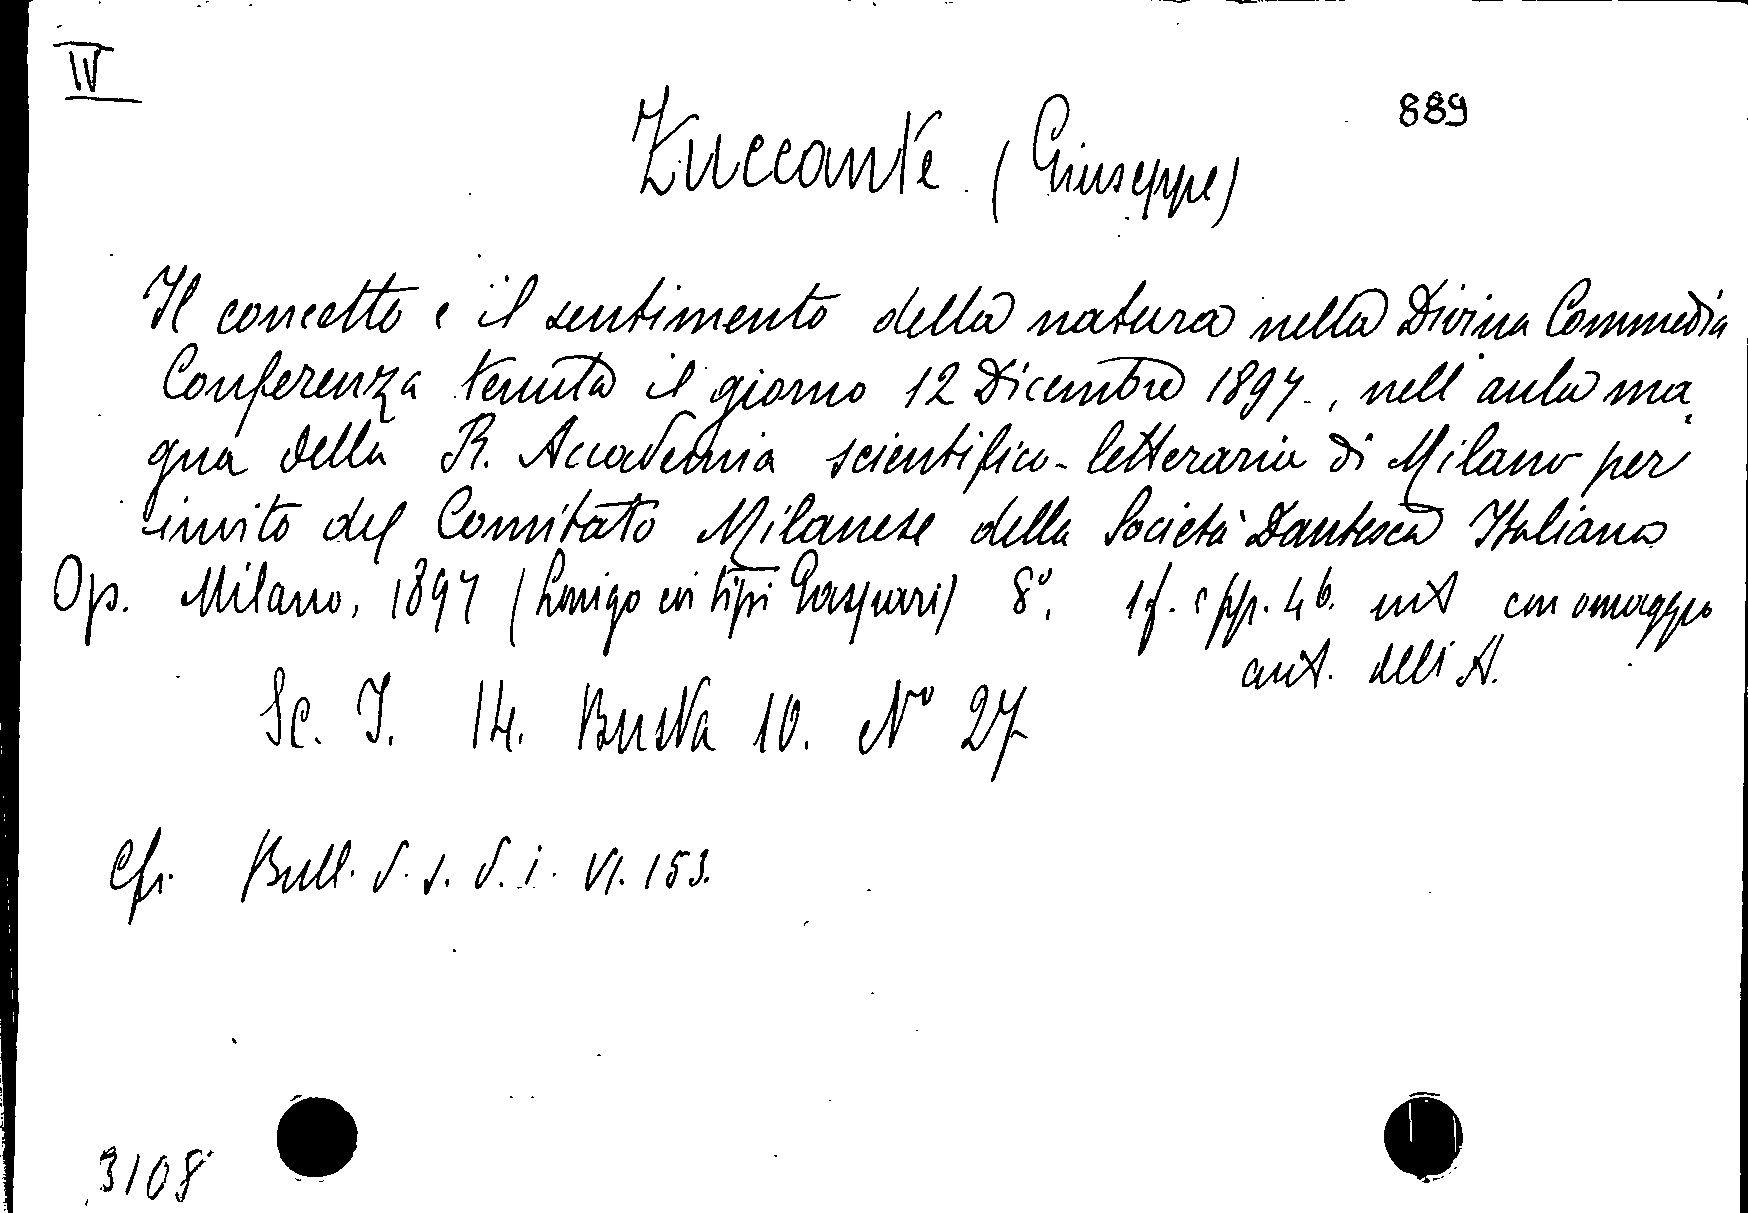 IV
889
Zuccante (Giuseppe)
Il concetto e il sentimento della natura nella Divina Commedia
Conferenza tenuta il giorno 12 Dicembre 1897., nell'aula ma
gna della R. Accademia scientifico-letteraria di Milano per
invito del Comitato Milanese della Società Dantesca Italiana
Op. Milano, 1897 (Lonigo coi tipi Gaspari) 8º. 1 f. e pp. 46. int con omaggio
aut. dell'A.
Sc. I. 14. Busta 10. Nº 27
Cfr. Bull. d. s. d. i. VI. 153.
3108